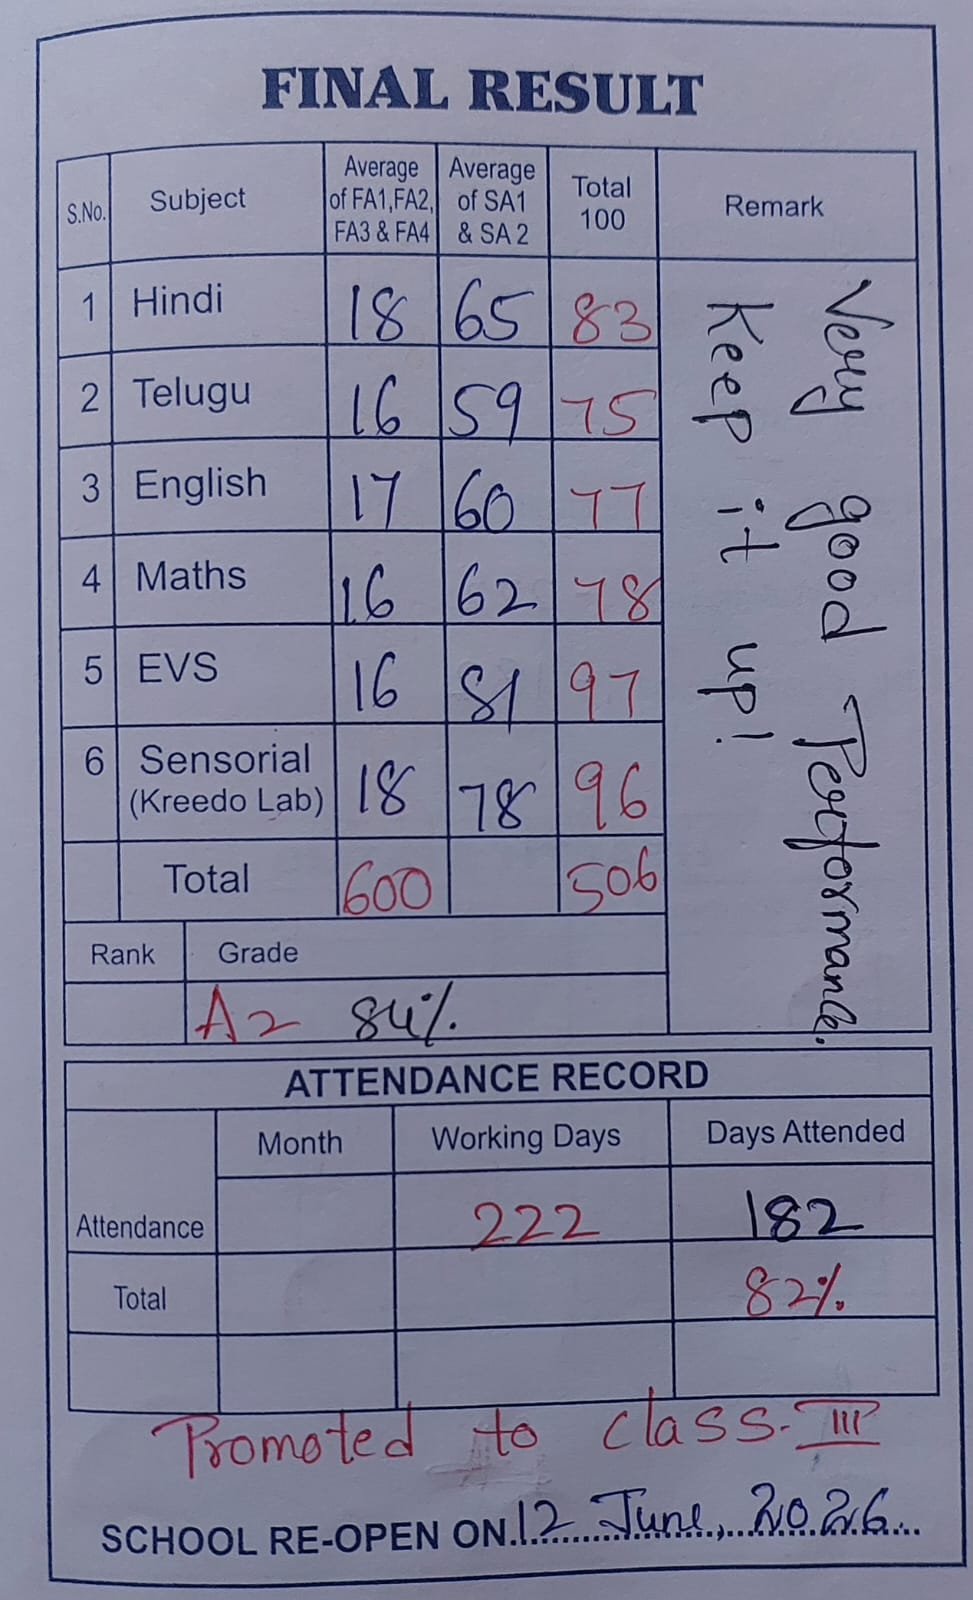 FINAL RESULT
S.No. Subject Average of FA1,FA2, FA3 & FA4 Average of SA1 & SA 2 Total 100 Remark
1 Hindi 18 65 83
2 Telugu 16 59 75
3 English 17 60 77
4 Maths 16 62 78
5 EVS 16 81 97
6 Sensorial (Kreedo Lab) 18 78 96
Total 600 506
Very good Performance.
Keep it up!
Rank Grade
A2 84%
ATTENDANCE RECORD
Month Working Days Days Attended
Attendance 222 182
Total 82%
Promoted to class-III
SCHOOL RE-OPEN ON 12 June, 2026